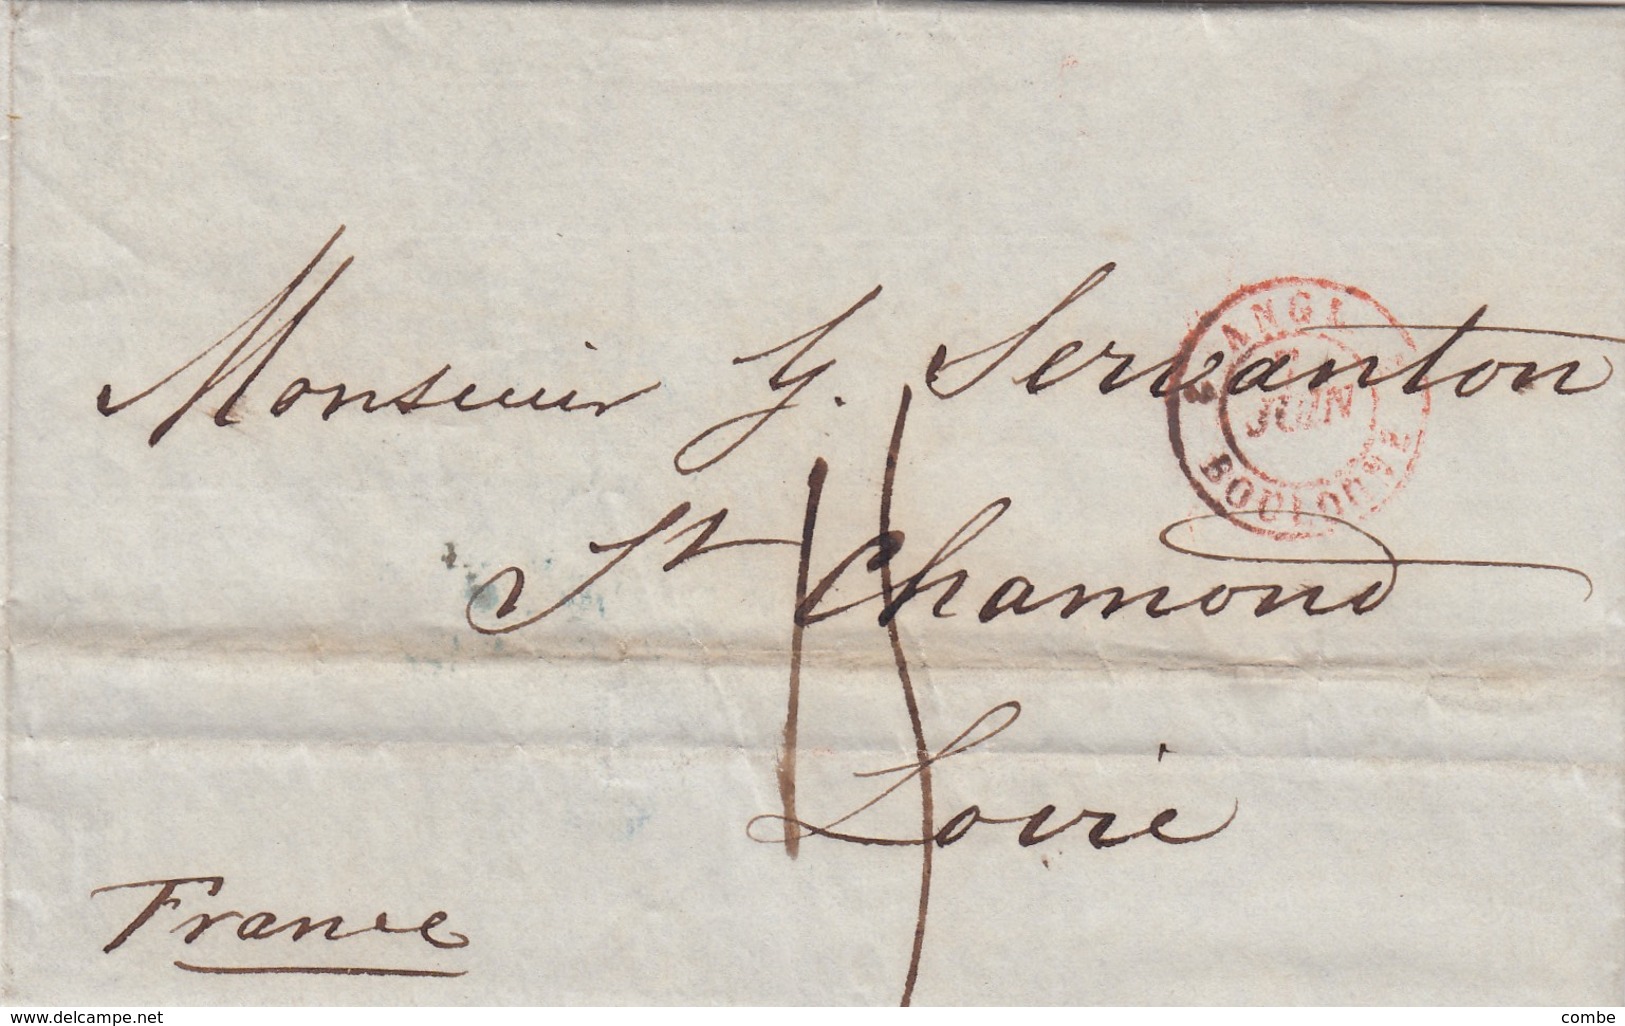 Monsieur G. Servanton
St Chamond
Loire
France
ANGL.
JUIN
2 BOULOGNE 2
www.delcampe.net
combe